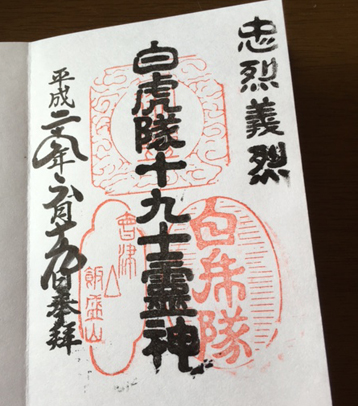 忠烈義烈
白虎隊十九士靈神
平成二十八年六月十九日奉拝
白虎隊
會津
飯盛山